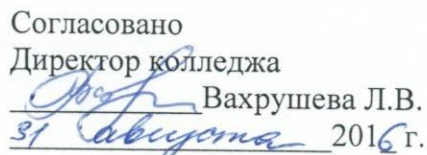 Согласовано
Директор колледжа
Вахрушева Л.В.
31 августа 2016 г.